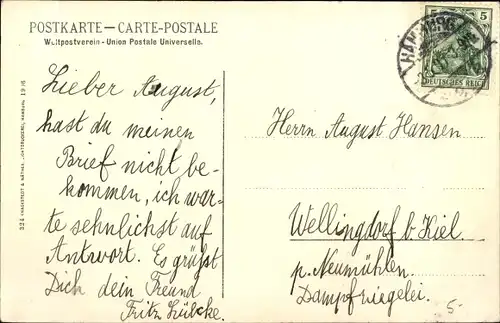 POSTKARTE – CARTE-POSTALE
Weltpostverein - Union Postale Universelle.
5 5
DEUTSCHES REICH
HAMBURG
Lieber August,
hast du meinen
Brief nicht be-
kommen, ich war-
te sehnlichst auf
Antwort. Es grüßt
Dich dein Freund
Fritz Lübcke.
Herrn August Hansen
Wellingdorf b. Kiel.
p. Neumühlen.
Dampfziegelei.
5-